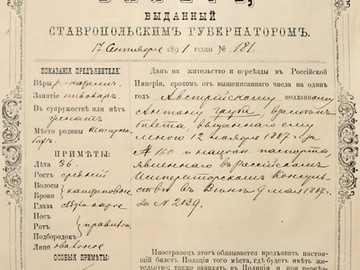 БИЛЕТЪ,
ВЫДАННЫЙ
СТАВРОПОЛЬСКИМЪ ГУБЕРНАТОРОМЪ.
17 Сентября 1891 года № 181.
ПОКАЗАНІЯ ПРЕДЪЯВИТЕЛЯ:
Вѣры р-катол.
Занятіе
Въ супружествѣ или нѣтъ
женатъ
Мѣсто родины
ПРИМѢТЫ:
Лѣта 56.
Ростъ средній
Волосы
Брови
Глаза
Носъ
Ротъ
Подбородокъ
Лице овальное
ОСОБЫЯ ПРИМѢТЫ:
Данъ на жительство и переѣзды въ Россійской
Имперіи, срокомъ отъ вышеписаннаго числа на одинъ
годъ Австрійскому подданному
Антону
билета, выданнаго ему
мною 12 ноября 1887 г. за
№ и націон. паспорта,
явленнаго въ россійскомъ
Императорскомъ Консуль-
ствѣ въ Вѣнѣ 9 мая 1887 г.
за № 2139.
Иностранецъ этотъ обязывается предъявить настоя-
щій билетъ Полиціи того мѣста, гдѣ будетъ имѣть жи-
тельство; также заявлять Полиціи и при переѣз-